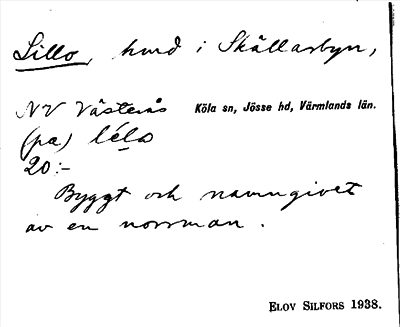 Lillo, hmd i Skållarbyn,
NV Västerås Köla sn, Jösse hd, Värmlands län.
(pa)
20:-
Byggt och namngivet
av en norrman.
ELOV SILFORS 1938.